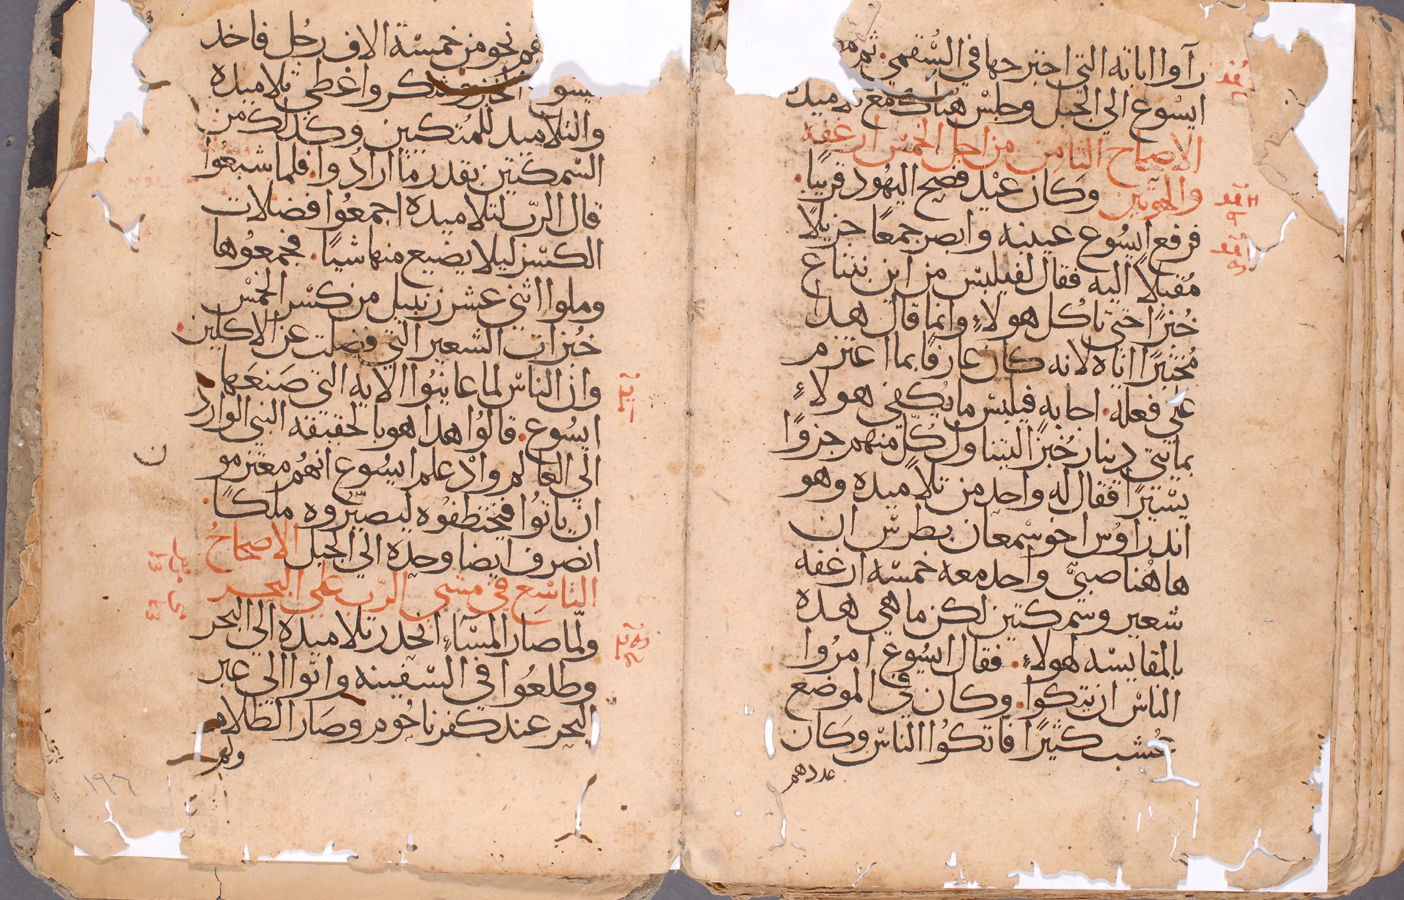 رآوا اياته التي اجترحها في السُقمي. ثم
ايسُوع الي الجبل وجلس هُناك مع تلاميده
الاصحاح الثامن من اجل الخمس ارغفه
والحوتين وكان عيد فصح اليهُود قريبًا.
فرفع ايسُوع عينيه وابصر جمعًا جزيلا
مُقبلاً اليه فقال لفيلبس من اين نبتاع
خُبزًا حتى ياكُل هولاءِ وانما قال هدا
مُختبرًا اياه لانه كان عارفًا بما اعتزم
علي فعله. اجابه فيلبس ما يكُفي هولاءِ
بمايتي دينار خُبزًا ليتناول كُل منهم جزوًا
يسيرًا فقال له واحد من تلاميده وهو
اندراوُس اخو سمعان بطرس ان
هاهُنا صبيً واحد معه خمسه ارغفه
شعير وسمكتين لكن ما هي هده
بالمقايسه لهولاءِ. فقال ايسُوع امرُوا
الناس ان يتكوا. وكان في الموضع
عُشب كثيرًا فاتكوُا الناس وكان
عددهم
نحو من خمسة الاف رجُل فاخد
يسوع الخبز وشكر واغطي تلاميده
والتلاميد للمُتكيين وكدلك من
السمكتين بقدر ما ارادوا. فلما شبعُوا
قال الربّ لتلاميده اجمعُوا فضلات
الكسر ليلا يضيع منها شيًا. فجمعُوها
وملوا اثني عشر زنبيل من كسر الخمس
خُبزات الشعير التي فضلت عن الاكلين.
وان الناس لما عاينُوا الايه التي صَنعَها
ايسُوع. قالُوا هدا هو بالحقيقه النبي الوارد
الي العالم واد علم ايسُوع انهُم معتزمو
ان ياتُوا فيختطفُوه ليصيّرُوه ملكًا.
انصرف ايضا وحده الي الجبل الاصحاحُ
التاسِع في مشي الربّ علي البحر
ولمّا صار المسَاءِ انحدر تلاميده الي البحر
وطلعُوا في السفينه واتوا الي عبر
البحر عند كفرناحُوم وصَار الظلام
ولم
١٩٦